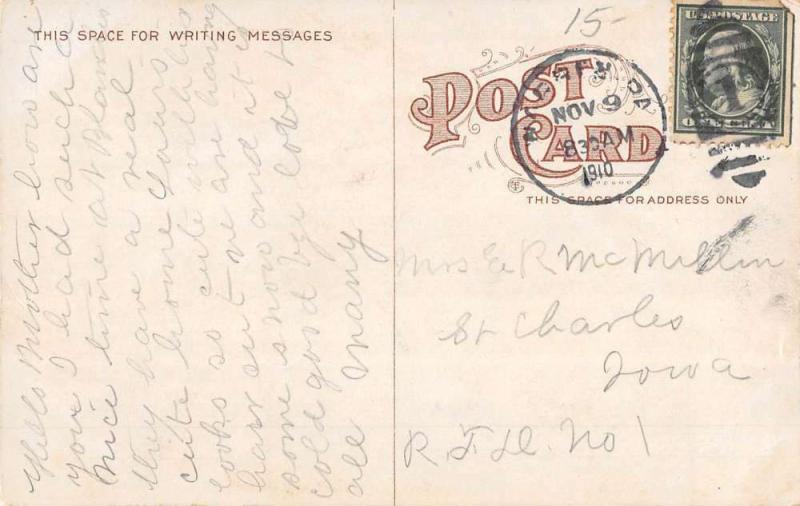 THIS SPACE FOR WRITING MESSAGES
15-
POST
CARD
THIS SPACE FOR ADDRESS ONLY
NOV 9
830AM
1910
U.S. POSTAGE
Hello Mother how are
you I had such a
nice time at
they have a real
cute home
looks so cute with his
hair cut we are having
some snow and it is
cold good bye love to
all Mary
Mrs E R McMillin
St Charles
Iowa
R.F.D. No 1